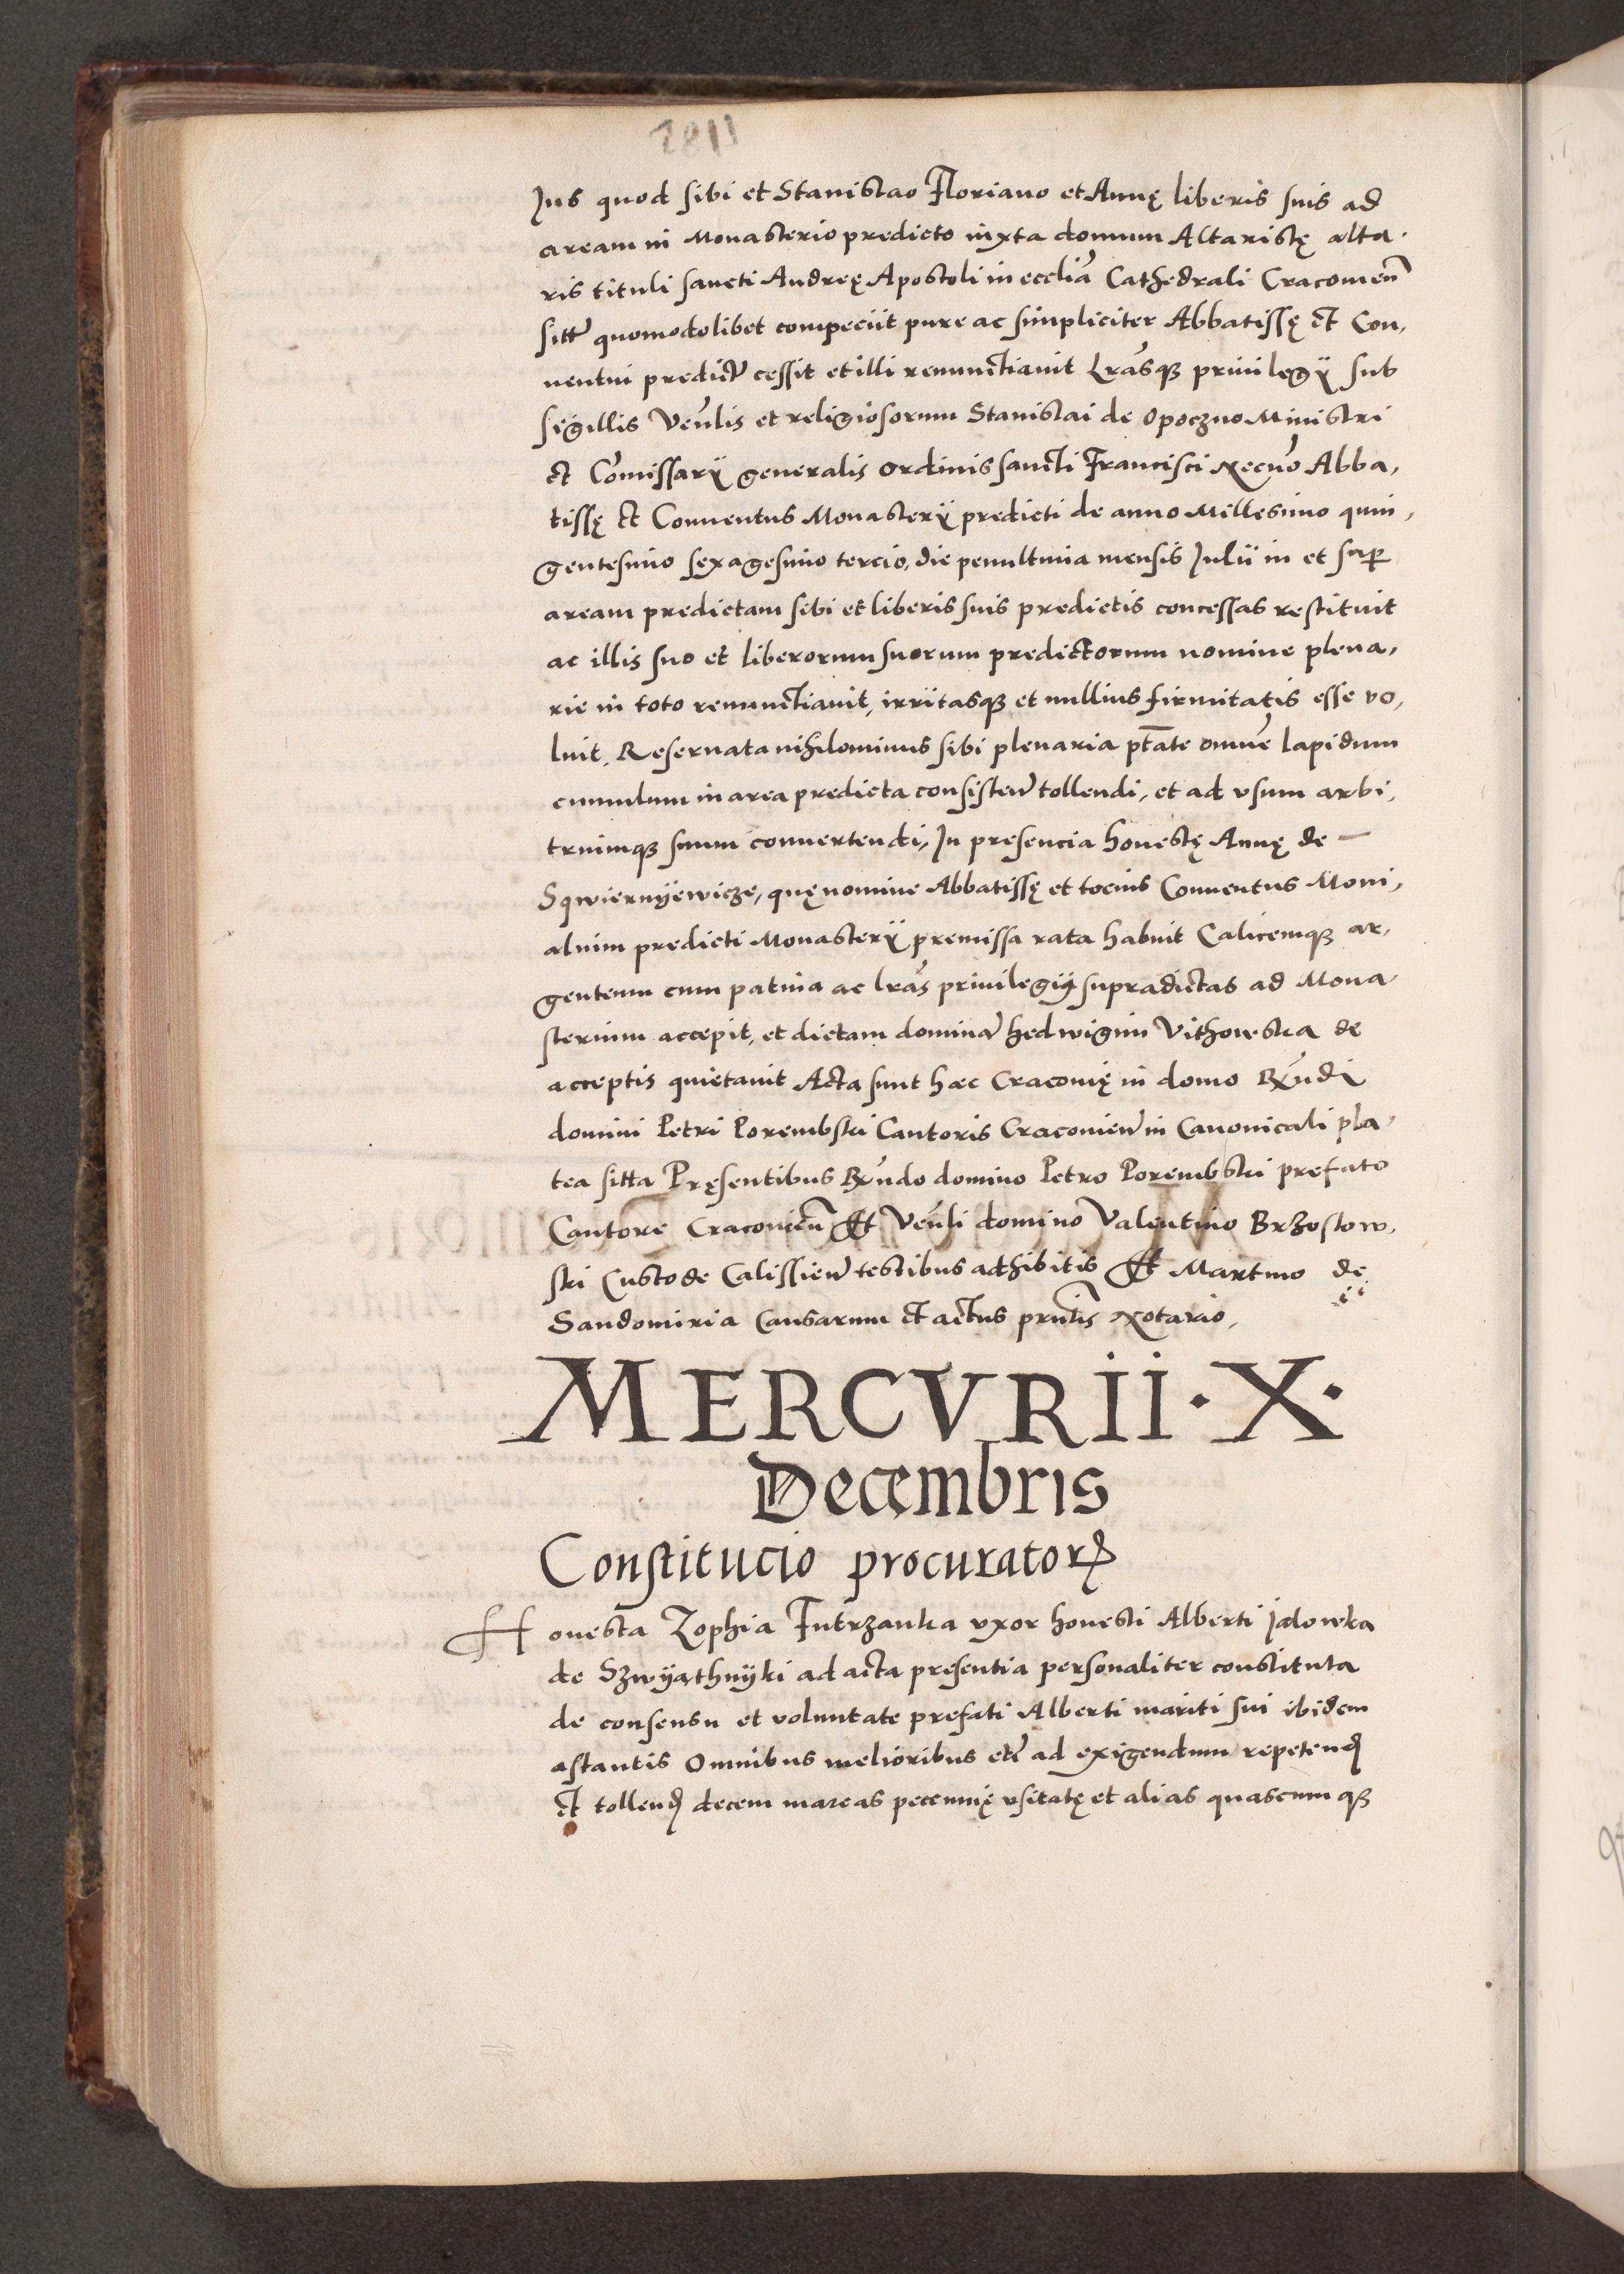 Jus quod sibi et Stanislao Floriano et Annę liberis suis ad
aream in Monasterio predicto iuxta domum Altaristę alta,
ris tituli sancti Andreę Apostoli in eccliã Cathedrali Cracouień
sitt̃ quomodolibet compeciit pure ac simpliciter Abbatissę et Con,
uentui predict̃ cessit et illi renunctiauit Lrãsqꝫ priuilegÿ sub
sigillis Veñlis et religiosorum Stanislai de Opoczno Ministri
et Com̃issarÿ generalis ordinis sancti Francisci necno̴ Abba,
tissę et Conuentus Monasterÿ predicti de anno Millesimo quin,
gentesimo sexagesimo tercio, die penultima mensis Julii in et sup̱
aream predictam sibi et liberis suis predictis concessas restituit
ac illis suo et liberorum suorum predictorum nomine plena,
rie in toto renunctiauit, irritasqꝫ et nullius firmitatis esse vo,
luit. Reseruata nihilominus sibi plenaria pt̃ate omnẽ lapidum
cumulum in area predicta consisteñ tollendi, et ad vsum arbi,
triumqꝫ suum conuertendi, In presencia honestę Annę de —
Sqwiernÿewicze, quę nomine Abbatissę et tocius Conuentus Moni,
alium predicti Monasterÿ premissa rata habuit Calicemqꝫ ar,
genteum cum patina ac lrãs priuilegÿ supradictas ad Mona,
sterium accepit, et dictam dominã hedwigim Vithowska de
acceptis quietauit Acta sunt haec Cracouię in domo Rũdi
domini Petri Porembski Cantoris Cracouień in Canonicali pla,
tea sitta Pręsentibus Rũdo domino Petro Porembski prefato
Cantore Cracouień Et Veñli domino Valentino Brzostow,
ski Custode Calissień testibus adhibitis Et Martino de
Sandomiria Causarum et actus prñtis Notario,
MERCVRII · X ·
Decembris
Constitucio procuratorꝝ
Honesta Zophia Futrzanka vxor honesti Alberti Jalowka
de Szwÿathnÿki ad acta presentia personaliter constituta
de consensu et voluntate prefati Alberti mariti sui ibidem
astantis Omnibus melioribus etc̃ ad exigendum repetenđ
et tollenđ decem marcas pecunnię vsitatę et alias quascumqꝫ